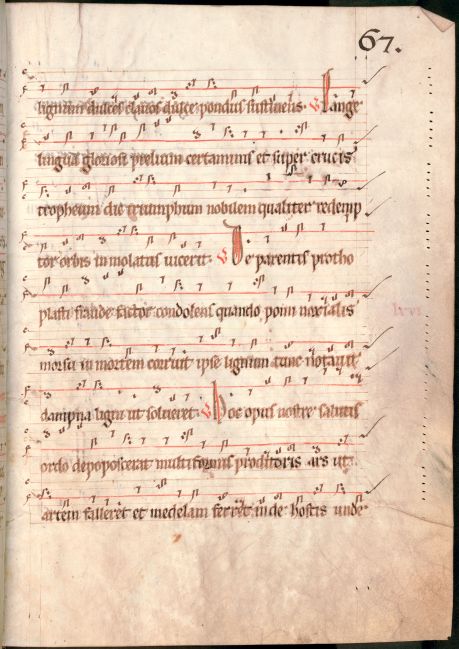 67.
lignum dulces clauos dulce pondus sustinens. Pange
lingua gloriosi prelium certaminis et super crucis
tropheum dic triumphum nobilem qualiter redemp
tor orbis inmolatus uicerit. De parentis protho
plasti fraude factor condolens quando pomi noxialis
morsu in mortem corruit ipse lignum tunc notauit
dampna ligni ut solueret. Hoc opus nostre salutis
ordo depoposcerat multiformis proditoris ars ut
artem falleret et medelam ferret inde hostis unde